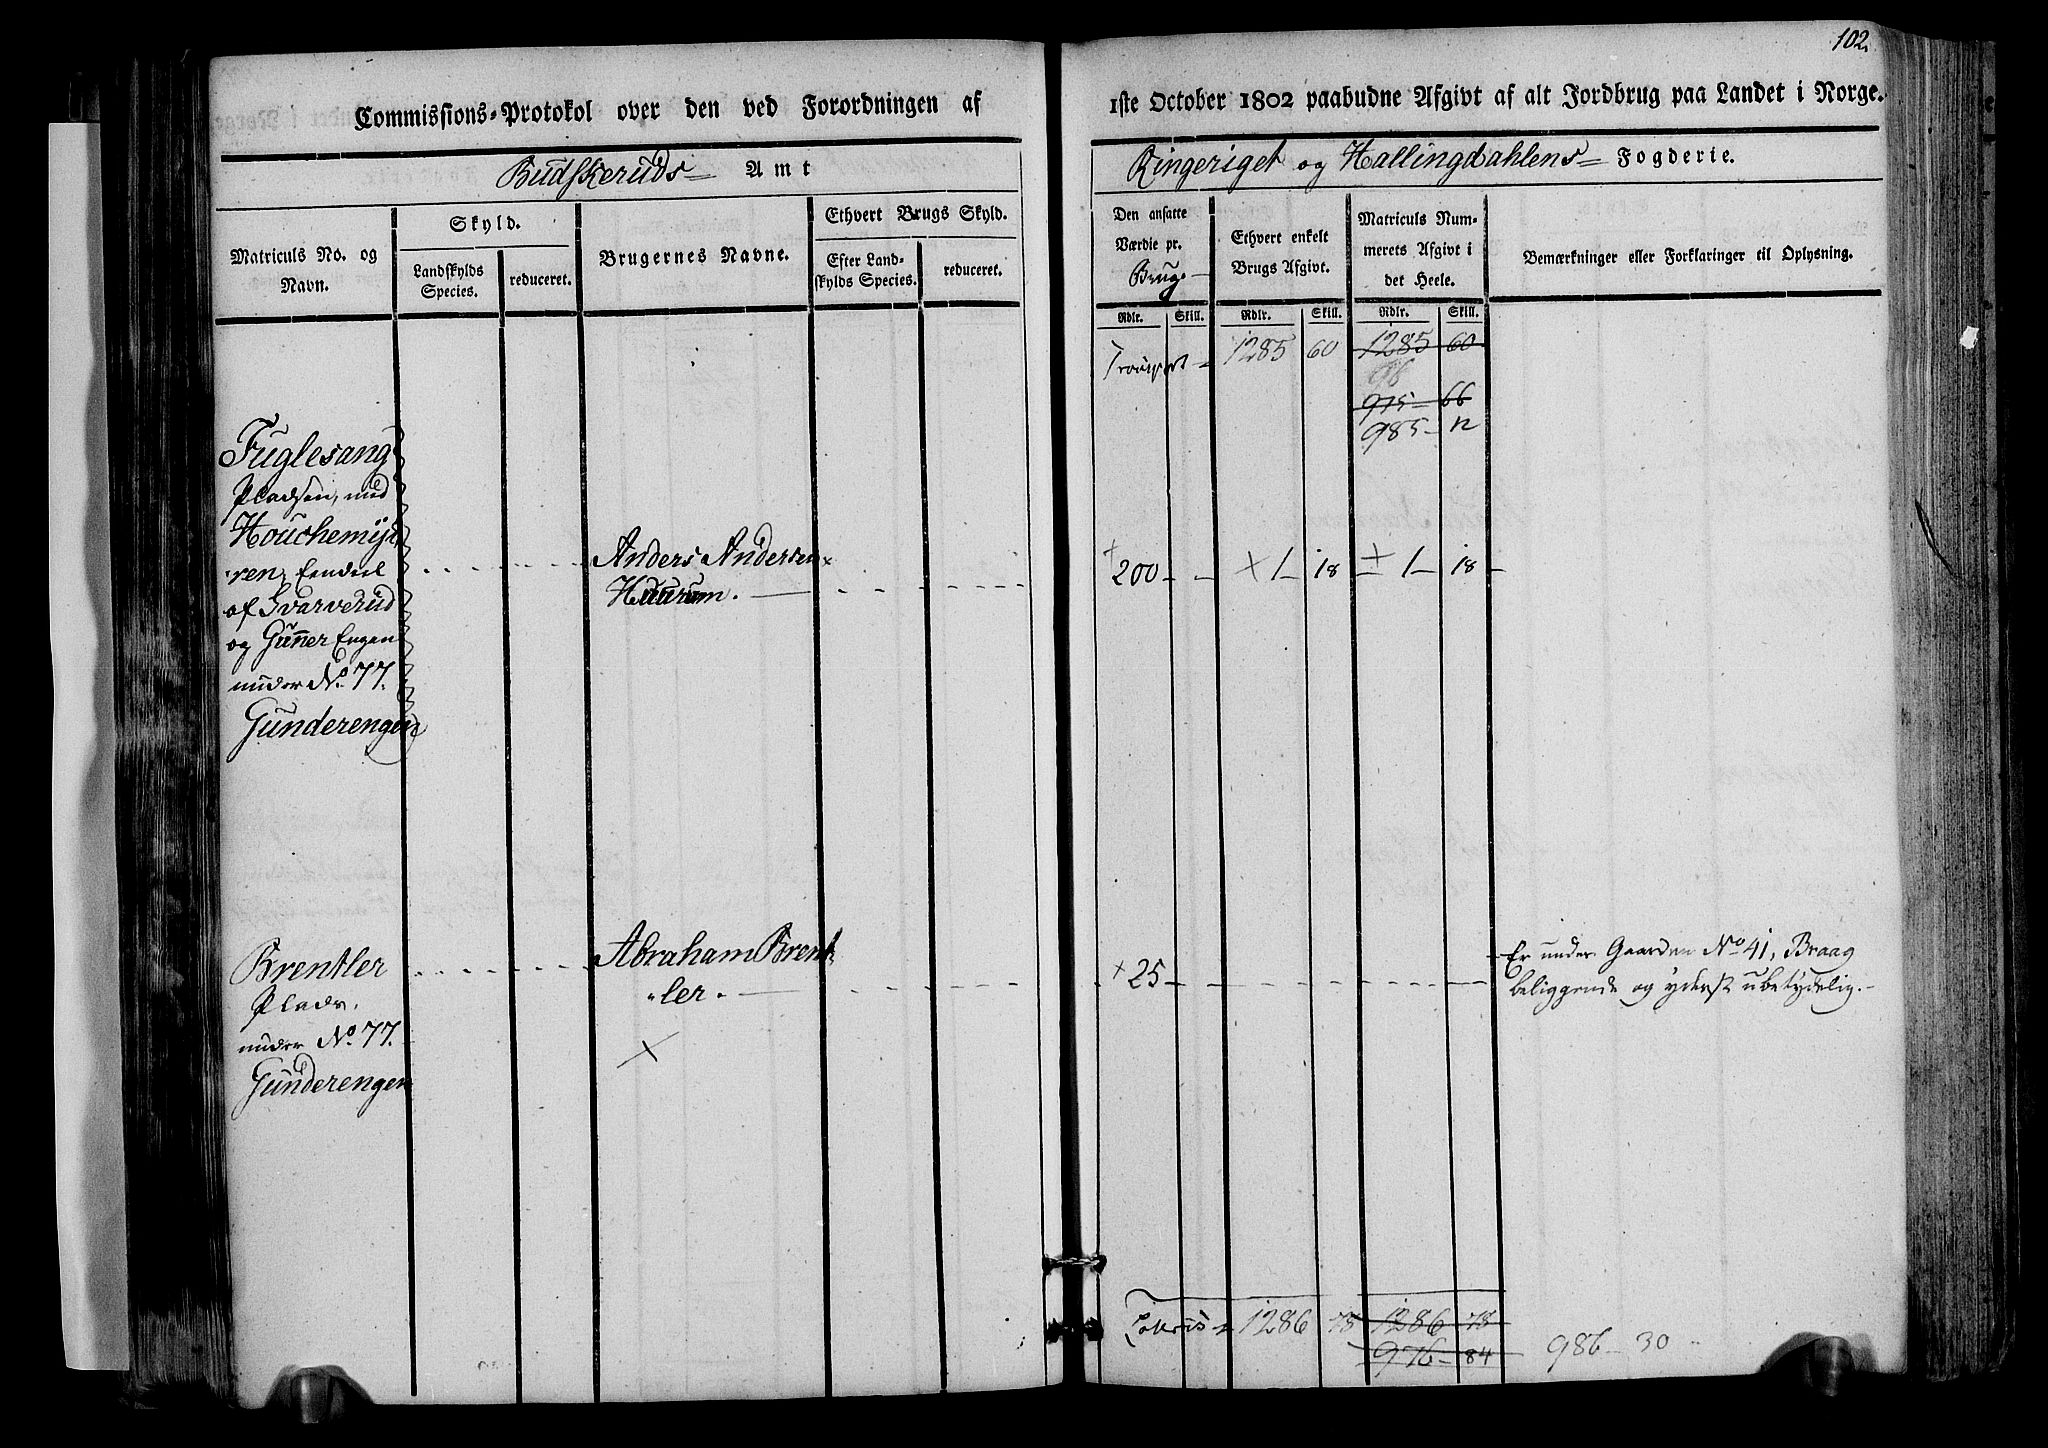 102.
Commissions-Protokol over den ved Forordningen af
1ste October 1802 paabudne Afgivt af alt Jordbrug paa Landet i Norge.
Budskeruds Amt
Ringeriget og Hallingdahlens Fogderie.
Matriculs No. og
Navn.
Skyld.
Landskylds
Species.
reduceret.
Brugernes Navne.
Ethvert Brugs Skyld.
Efter Land-
skylds Species.
reduceret.
Den ansatte
Værdie pr.
Brug
Rdlr. Skill.
Ethvert enkelt
Brugs Afgivt.
Rdlr. Skill.
Matriculs Num-
merets Afgivt i
det Heele.
Rdlr. Skill.
Bemærkninger eller Forklaringer til Oplysning.
Transport 1285 60 1285 60
96
975 66
985 12
Fuglesang
Pladsen, med
Houchemyh
ren, Eendeel
af Svarverud
og Gunner Engen
under No. 77.
Gunderengen
Anders Andersen
Huurum.
+ 200 - - × 1 - 18 ± 1 - 18 -
Brentler
Plads.
under No. 77.
Gunderengen
Abraham Brent
ler.
×
+ 25
Er under Gaarden No 41, Braag
beliggende og yderst ubetydelig.
Lateris 1286 78 1286 78
976 84
986 - 30